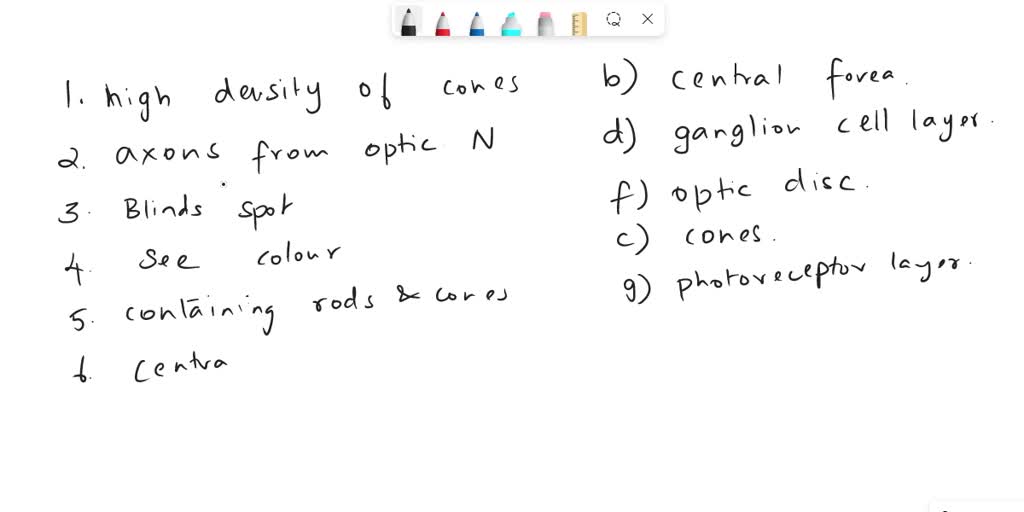 1. high density of cones b) central fovea.
2. axons from optic N d) ganglion cell layer.
3. Blinds spot f) optic disc.
4. See colour c) cones.
5. containing rods & cones g) photoreceptor layer.
6. Centra